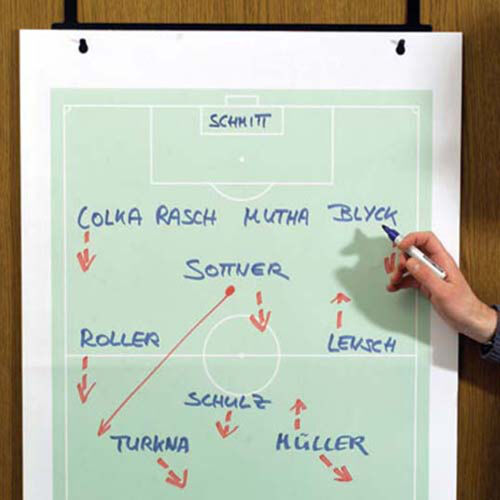 SCHMITT
COLKA RASCH MUTHA BLYCK
SOTTNER
ROLLER LENSCH
SCHULZ
TURKNA MÜLLER